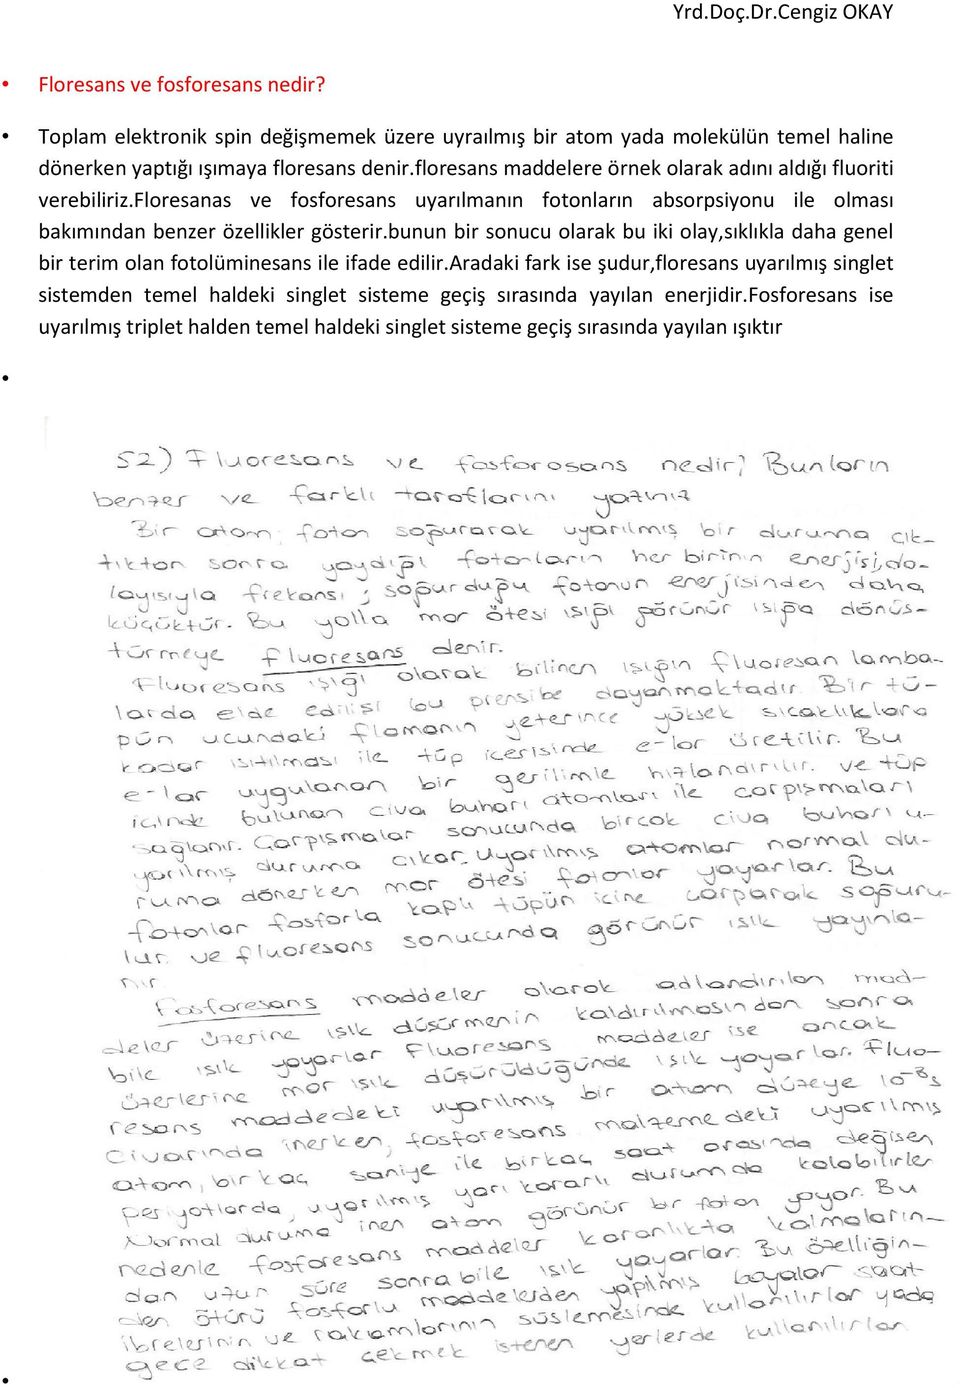 Yrd.Doç.Dr.Cengiz OKAY
• Floresans ve fosforesans nedir?
• Toplam elektronik spin değişmemek üzere uyraılmış bir atom yada molekülün temel haline
dönerken yaptığı ışımaya floresans denir.floresans maddelere örnek olarak adını aldığı fluoriti
verebiliriz.Floresanas ve fosforesans uyarılmanın fotonların absorpsiyonu ile olması
bakımından benzer özellikler gösterir.bunun bir sonucu olarak bu iki olay,sıklıkla daha genel
bir terim olan fotolüminesans ile ifade edilir.Aradaki fark ise şudur,floresans uyarılmış singlet
sistemden temel haldeki singlet sisteme geçiş sırasında yayılan enerjidir.Fosforesans ise
uyarılmış triplet halden temel haldeki singlet sisteme geçiş sırasında yayılan ışıktır
•
52) Fluoresans ve fosforosans nedir? Bunların
benzer ve farklı taraflarını yazınız
Bir atom, foton soğurarak uyarılmış bir duruma çık-
tıktan sonra yaydığı fotonların her birinin enerjisi, do-
layısıyla frekansı; soğurduğu fotonun enerjisinden daha
küçüktür. Bu yolla mor ötesi ışığı görünür ışığa dönüş-
türmeye fluoresans denir.
Fluoresans ışığı olarak bilinen ışığın fluoresan lamba-
larda elde edilişi bu prensibe dayanmaktadır. Bir tü-
pün ucundaki flamanın yeterince yüksek sıcaklıklara
kadar ısıtılması ile tüp içerisinde e-lar üretilir. Bu
e-lar uygulanan bir gerilimle hızlandırılır. ve tüp
içinde bulunan civa buharı atomları ile çarpışmaları
sağlanır. Çarpışmalar sonucunda birçok civa buharı u-
yarılmış duruma çıkar. Uyarılmış atomlar normal du-
ruma dönerken mor ötesi fotonlar yayarlar. Bu
fotonlar fosforla kaplı tüpün içine çarparak soğuru-
lur ve fluoresans sonucunda görünür ışık yayınla-
nır.
Fosforesans maddeler olarak adlandırılan mad-
deler üzerine ışık düşürmenin kaldırılmasından sonra
bile ışık yayarlar Fluoresans maddeler ise ancak
üzerlerine mor ışık düşürüldüğünde ışık yayarlar. Fluo-
resans maddedeki uyarılmış bir atom düzeye 10-8s
civarında inerken, fosforesans malzemedeki uyarılmış
atom, bir kaç saniye ile birkaç saat arasında değişen
periyotlarda, uyarılmış yarı kararlı durumda kalabilirler
Normal duruma inen atom görünür bir foton yayar. Bu
nedenle fosforesans maddeler karanlıkta kalmaların-
dan uzun süre sonra bile ışık yayarlar. Bu özelliğin-
den ötürü fosforlu maddelerden yapılmış boyalar saat
ibrelerinin ve rakamlarının süslemesinde kullanılırlar yada
gece dikkat çekmek istenen yerlerde kullanılırlar
•